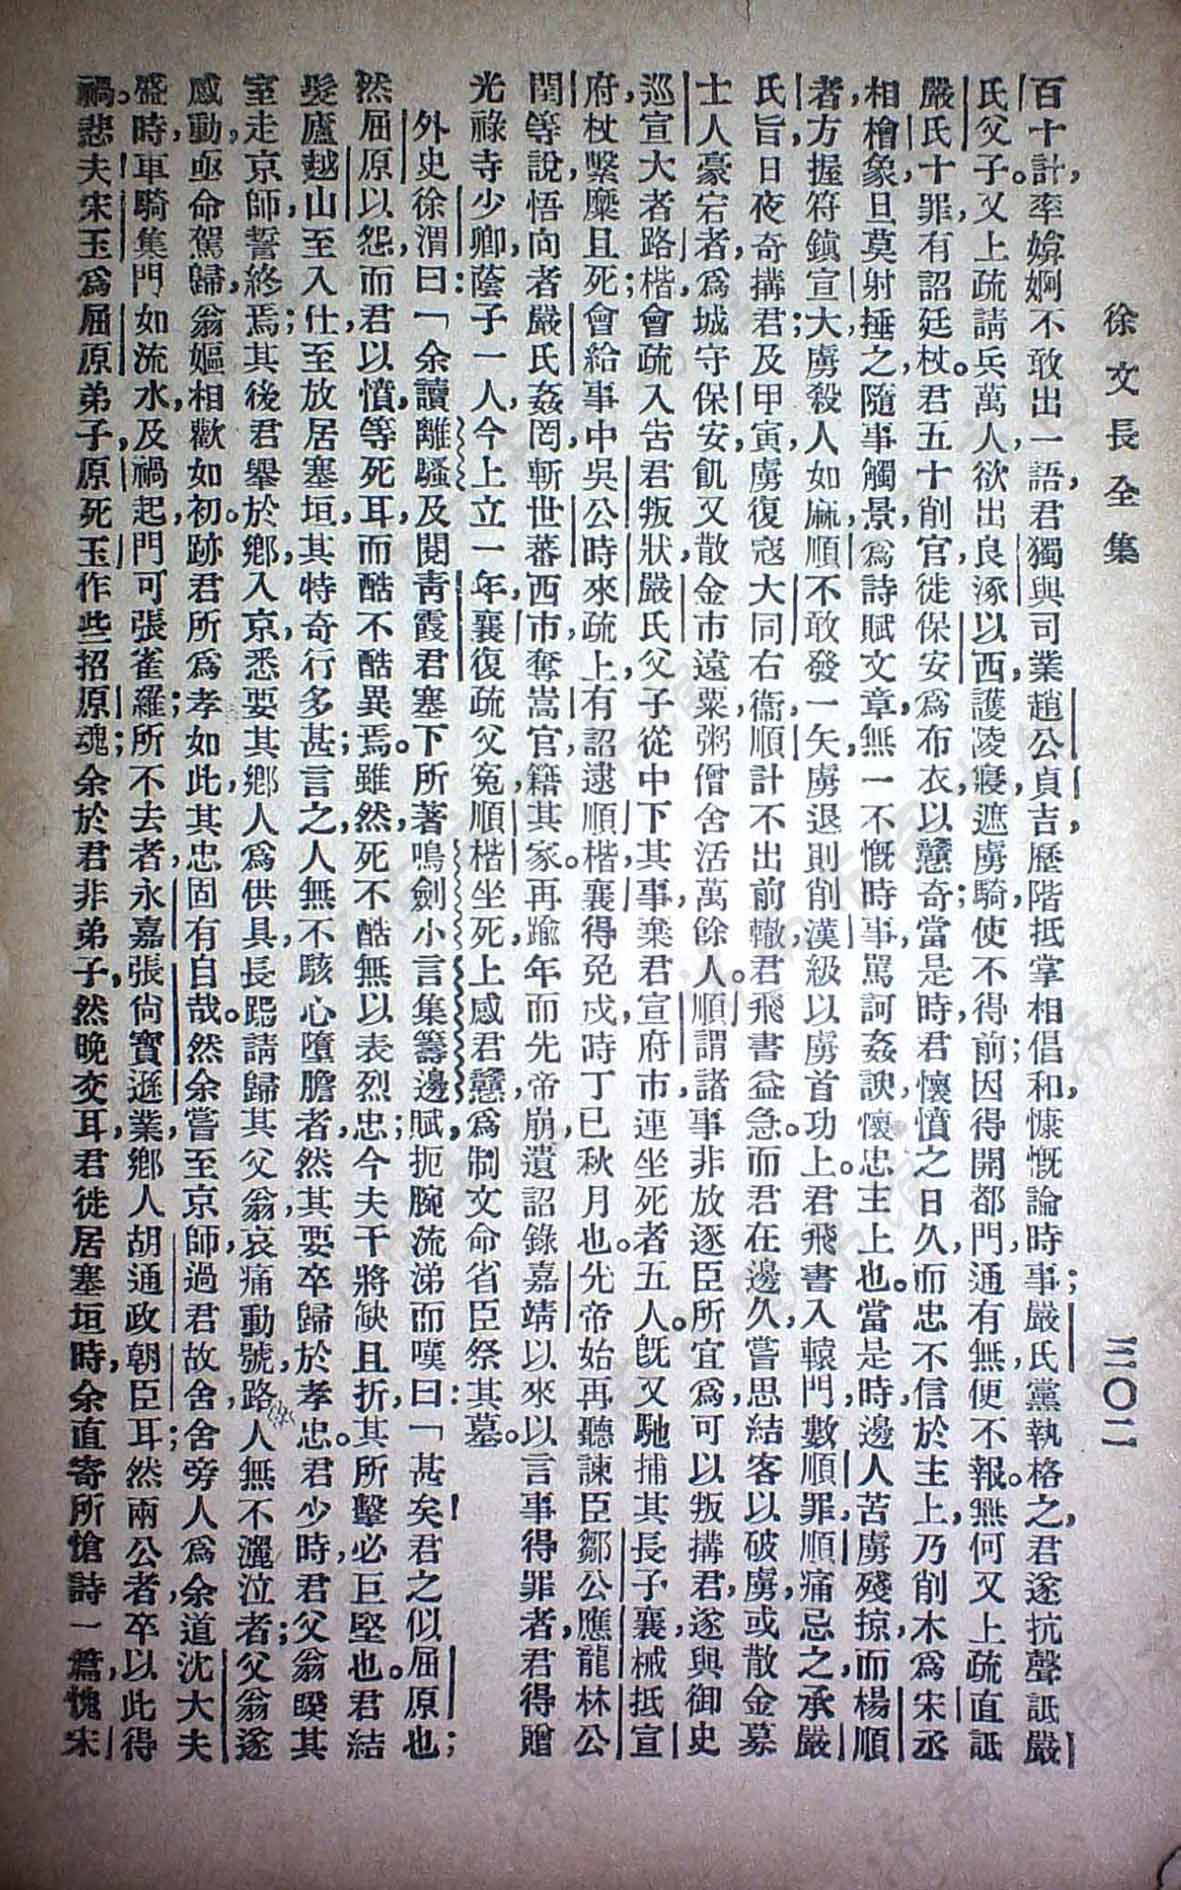 徐文長全集　三〇二
百十計，率媕婀不敢出一語，君獨與司業趙公貞吉，歷階抵掌相倡和，慷慨論時事；嚴氏黨執格之，君遂抗聲詆嚴
氏父子。又上疏請兵萬人，欲出良涿以西，護陵寢，遮虜騎；使不得前，因得開都門，通有無，便不報。無何又上疏直詆
嚴氏十罪，有詔廷杖。君五十削官，徙保安爲布衣，以戇奇。當是時，君懷憤之日久，而忠不信於主上，乃削木爲宋丞
相檜象，旦莫射捶之，隨事觸景，爲詩賦文章，無一不慨時事，罵訶姦諛，懷忠主上也。當是時，邊人苦虜殘掠，而楊順
者，方握符鎮宣大；虜殺人如麻，順不敢發一矢，虜退則削漢級以虜首功上。君飛書入轅門，數順罪，順痛忌之，承嚴
氏旨，日夜奇搆君；及甲寅，虜復寇大同右衞，順計不出前轍，君飛書益急。而君在邊久，嘗思結客以破虜，或散金募
士人豪宕者，爲城守保安，飢又散金市遠粟，粥僧舍活萬餘人。順謂諸事非放逐臣所宜爲，可以叛搆君，遂與御史
巡宣大者路楷，會疏入告君叛狀，嚴氏父子從中下其事，棄君宣府市，連坐死者五人。旣又馳捕其長子襄，械抵宣
府，杖繫糜且死；會給事中吳公時來疏上，有詔逮順楷，襄得免戍，時丁巳秋月也。先帝始再聽諫臣鄒公應龍林公
閏等說，悟向者嚴氏姦罔，斬世蕃西市，奪嵩官，籍其家。再踰年而先帝崩，遺詔錄嘉靖以來以言事得罪者，君得贈
光祿寺少卿，蔭子一人，今上立一年，襄復疏父冤，順楷坐死，上感君戇，爲制文命省臣祭其墓。
外史徐渭曰：「余讀離騷，及閱青霞君塞下所著鳴劍小言集籌邊賦，扼腕流涕而嘆曰：「甚矣！君之似屈原也；
然屈原以怨，而君以憤，等死耳，而酷不酷異焉。雖然，死不酷無以表烈忠；今夫干將缺且折，其所擊必巨堅也。君結
髮廬越山，至入仕，至放居塞垣，其特奇行多甚；言之人無不駭心墮膽者，然其要卒歸於孝忠。君少時，君父翁暌其
室走京師，誓終焉；其後君舉於鄉，入京悉要其鄉人爲供具，長跽請歸其父翁，哀痛動號，路人無不灑泣者；父翁遂
感動，亟命駕歸，翁嫗相歡如初。跡君所爲孝如此，其忠固有自哉。然余嘗至京師，過君故舍，舍旁人爲余道沈大夫
盛時，車騎集門如流水，及禍起，門可張雀羅；所不去者，永嘉張尙寶遜業，鄉人胡通政朝臣耳；然兩公者，卒以此得
禍。悲夫！宋玉爲屈原弟子，原死玉作些招原魂；余於君非弟子，然晚交耳，君徙居塞垣時，余直寄所愴詩一篇，愧宋